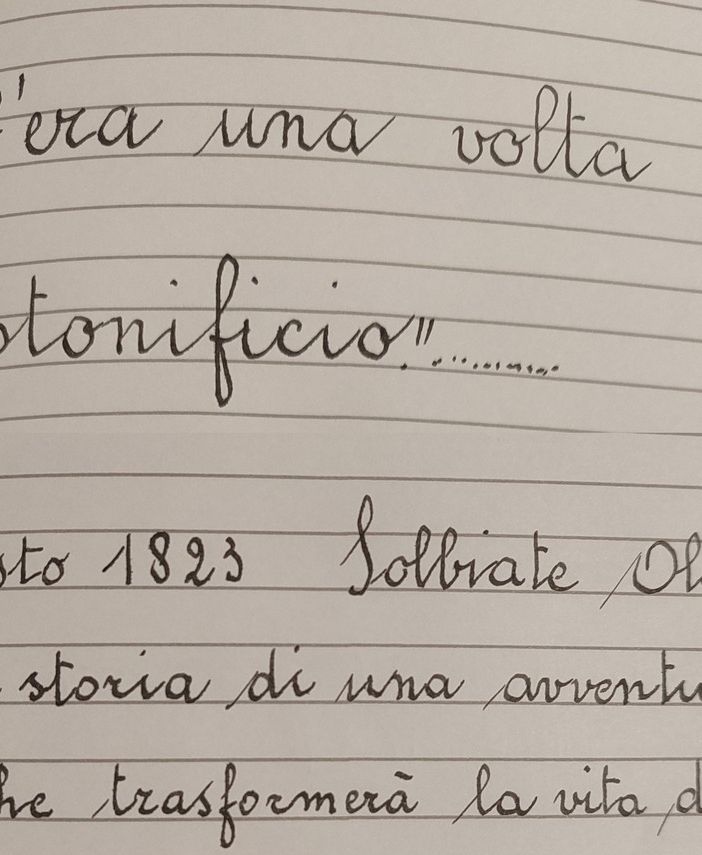 'era una volta
otonificio"...........
sto 1823 Solbiate Ol
storia di una avventu
he trasformerà la vita d